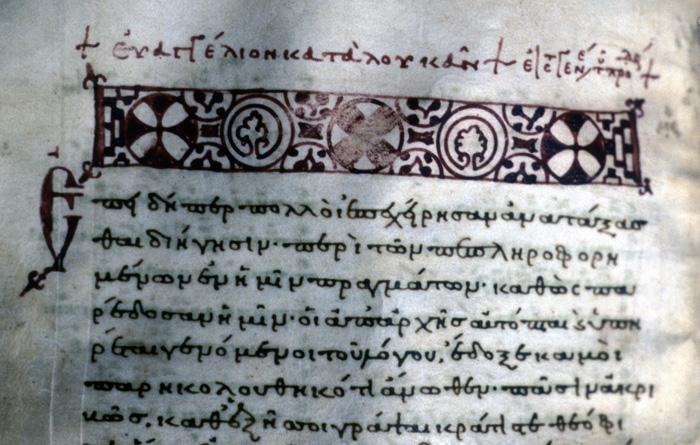 + ευαγγέλιον κατὰ λουκᾶν +
Επειδήπερ πολλοὶ ἐπεχείρησαν ἀνατάξασ
θαι διήγησιν· περὶ τῶν πεπληροφορη
μένων ἐν ἡμῖν πραγμάτων· καθὼς πα
ρέδοσαν ἡμῖν· οἱ ἀπαρχῆς αὐτόπται καὶ ὑπη
ρέται γενόμενοι τοῦ λόγου, ἔδοξε καμοὶ
παρηκολουθηκότι ἄνωθεν· πᾶσιν ἀκρι
βῶς, καθεξῆς σοι γράψαι κράτιστε θεόφι